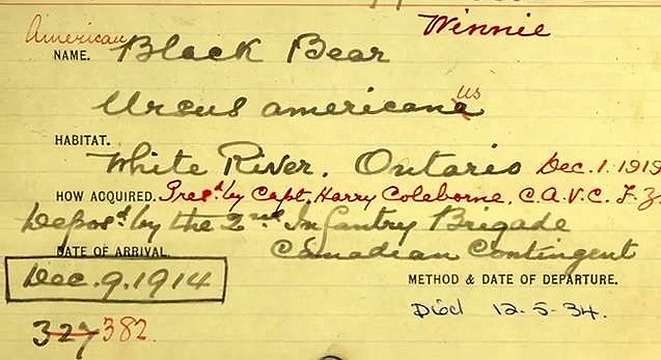 Winnie
American Black Bear
NAME.
Urcus americanaus
HABITAT.
White River. Ontario Dec. 1. 1919
HOW ACQUIRED. Pres.d by Capt. Harry Coleborne. C.A.V.C. F.Z.
Depos.d by the 2nd Infantry Brigade
DATE OF ARRIVAL. Canadian Contingent
Dec. 9. 1914
METHOD & DATE OF DEPARTURE.
Died 12-5-34.
327 382.